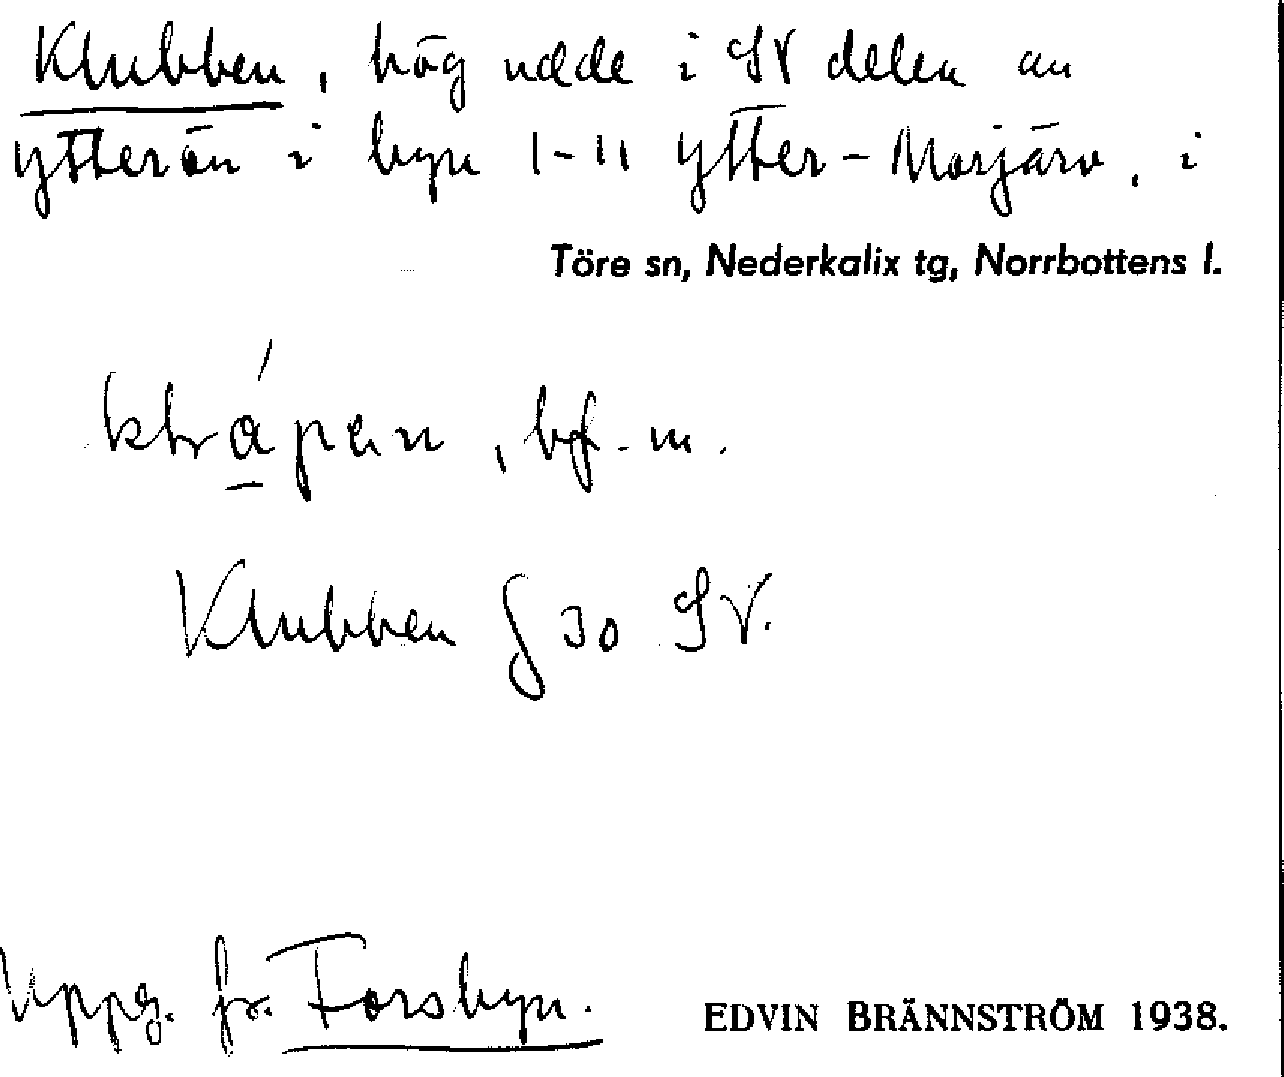 Klubben, hög udde i SV delen av
Ytterön i byn 1-11 Ytter-Morjärv, i
Töre sn, Nederkalix tg, Norrbottens l.
bf. m.
Klubben § 30 SV.
Uppg. fr. Forsbyn.
EDVIN BRÄNNSTRÖM 1938.